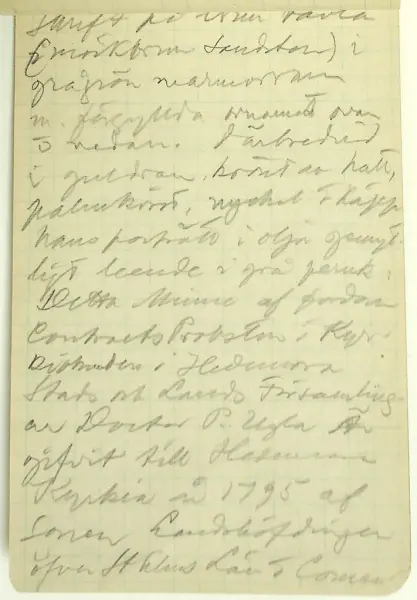 skrift på
(mörkbrun sandsten) i
grågrön marmorram
m. förgyllda ornament ovan
o nedan. Därbredvid
i guldram, krönt av hatt,
nyckel o käpp
hans porträtt i olja
leende i grå peruk.
Detta Minne af fordom
Contracts Probsten i Kyr
i Hedemora
Stads ok Lands Församling
ar Doctor P. Ugla Är
gifvit till Hedemora
Kyrkia år 1795 af
Sonen Landshöfdingen
öfver St Län o